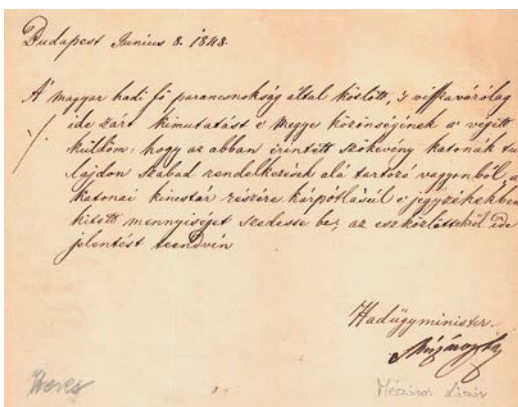 Budapest Junius 8. 1848.
A' magyar hadi fő parancsnokság által közlött, 's visszavárólag
ide zárt kimutatást e Megye közönségének a' végett
küldöm: hogy az abban érintett szökevény katonák tu
lajdon szabad rendelkezések alá tartozó vagyonból, a
katonai kincstár részére kárpótlásúl e jegyzékekben
kitett mennyiséget szedesse be; az eszközlöttekről ide
jelentést teendvén
Hadügyminister
Mészáros
Heves
Mészáros Lázár